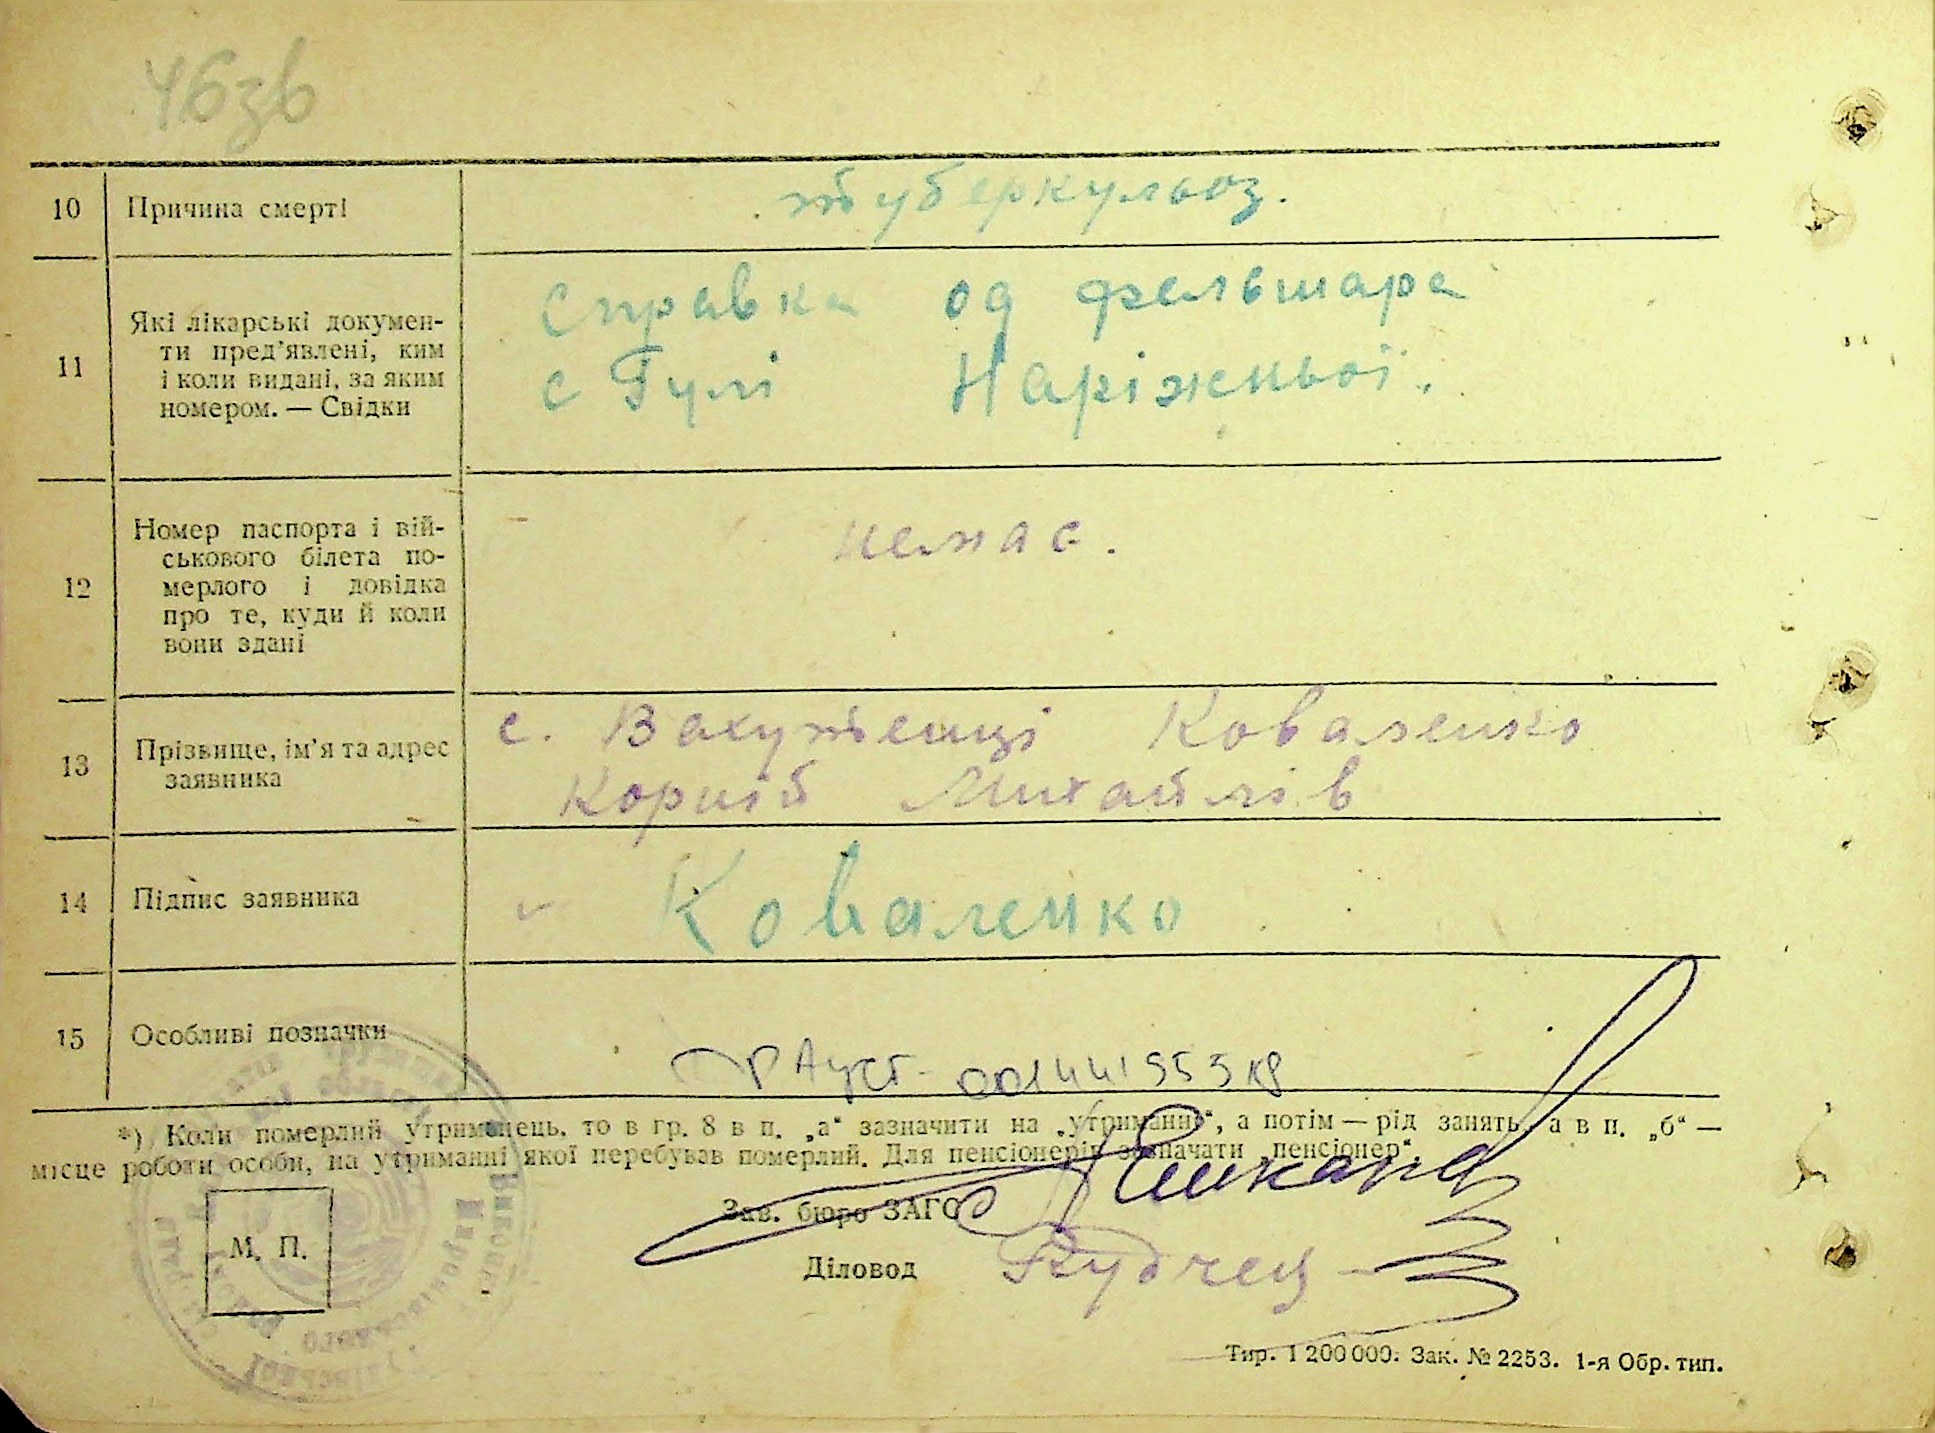 46зв
10 Причина смерті туберкульоз.
11 Які лікарські докумен-
ти пред'явлені, ким
і коли видані, за яким
номером. — Свідки
справка од фельшара
с Гулі Наріжньої.
12 Номер паспорта і вій-
ськового білета по-
мерлого і довідка
про те, куди й коли
вони здані
немає.
13 Прізвище, ім'я та адрес
заявника
с. Вахутенці Коваленко
Корній Михайлів
14 Підпис заявника Коваленко
15 Особливі позначки
*) Коли померлий утриманець, то в гр. 8 в п. „а“ зазначити на „утриманні“, а потім — рід занять, а в п. „б“ —
місце роботи особи, на утриманні якої перебував померлий. Для пенсіонерів зазначати „пенсіонер“.
Зав. бюро ЗАГС
М. П.
Діловод
Тир. 1 200 000. Зак. № 2253. 1-я Обр. тип.